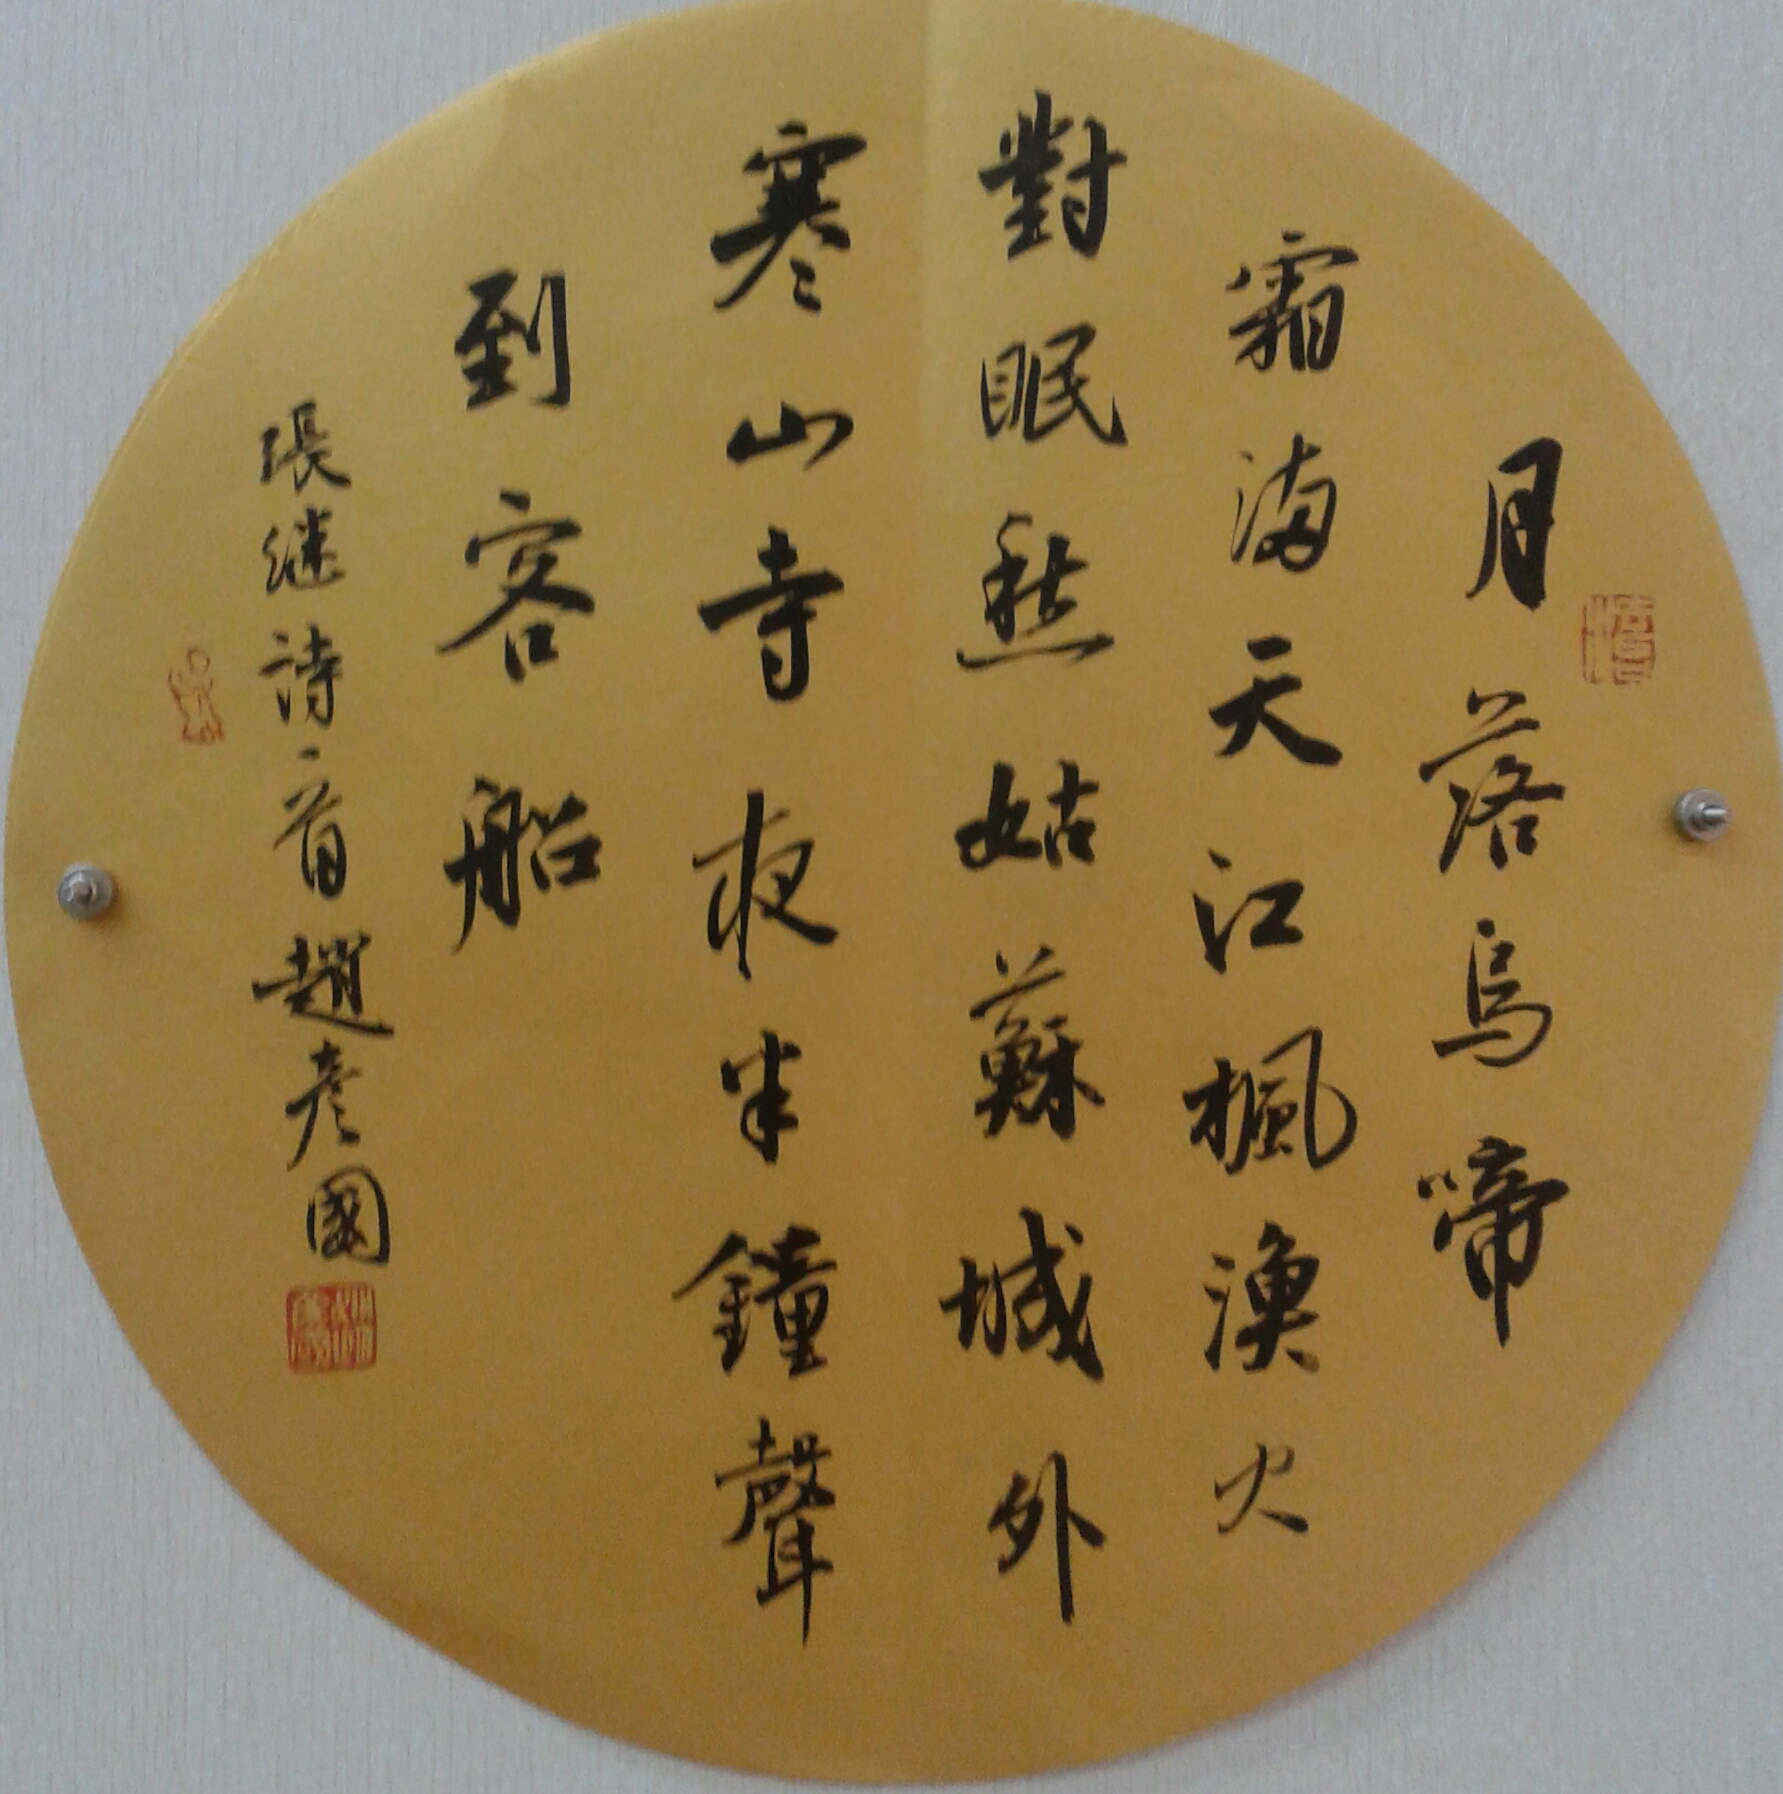 月落烏啼
霜满天江楓漁火
對眠愁姑蘇城外
寒山寺夜半鐘聲
到客船
張继詩一首趙彦國